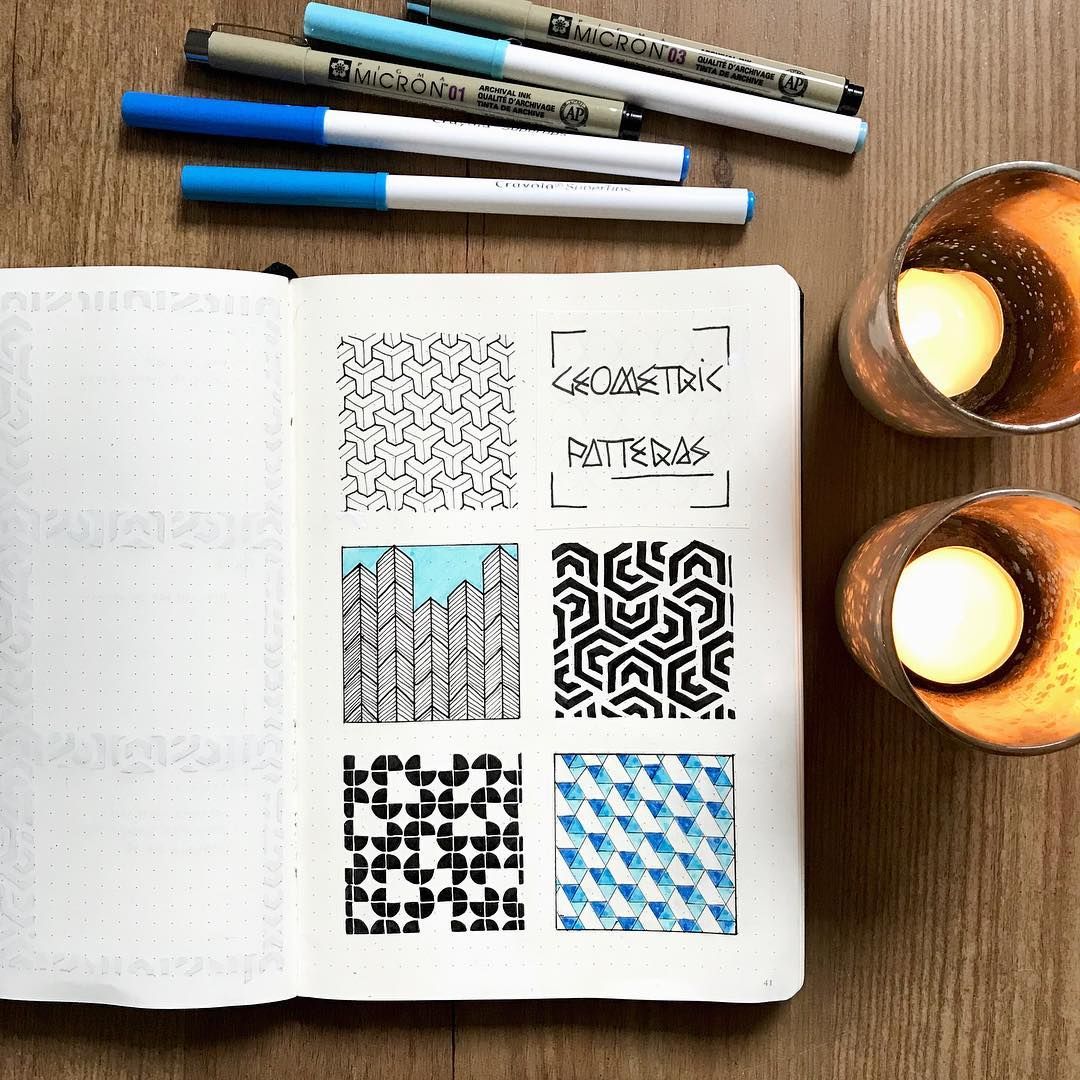 PIGMA
MICRON 03
ARCHIVAL INK
QUALITÉ D'ARCHIVAGE
TINTA DE ARCHIVE
AP
PIGMA
MICRON 01
ARCHIVAL INK
QUALITÉ D'ARCHIVAGE
TINTA DE ARCHIVE
AP
Crayola SuperTips
Crayola® SuperTips
GEOMETRIC
PATTERNS
41